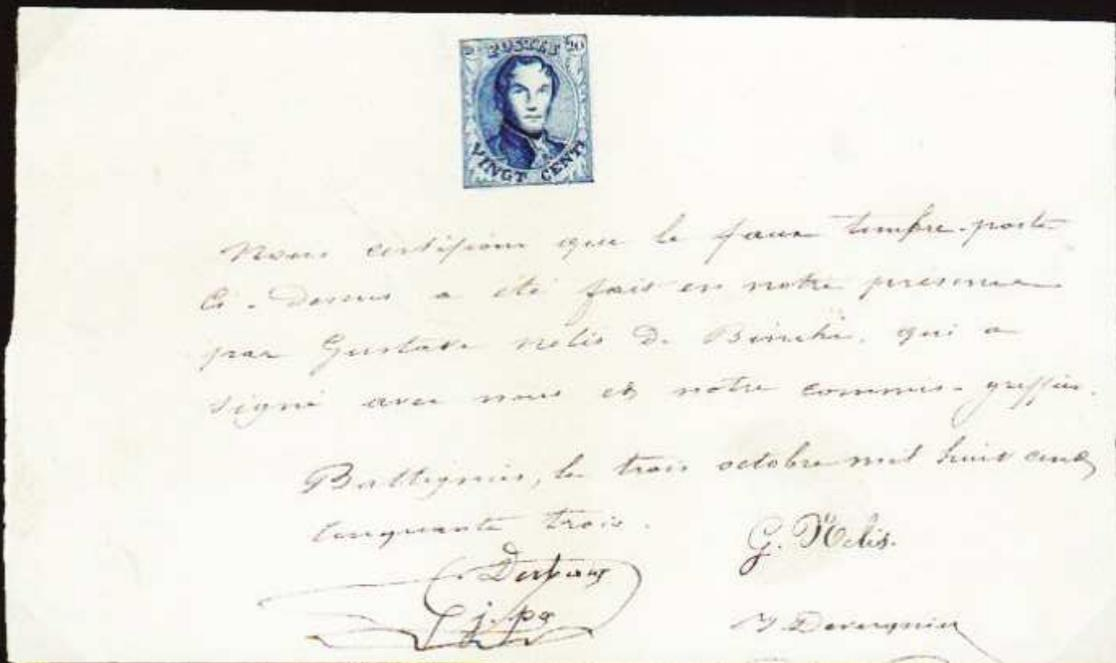 POSTES 20
VINGT CENT
Nous certifions que le faux timbre-poste
Ci-dessus a été fait en notre présence
par Gustave Nélis de Binche, qui a
signé avec nous et notre commis-greffier.
le trois octobre mil huit cent
cinquante trois.
G. Nélis.